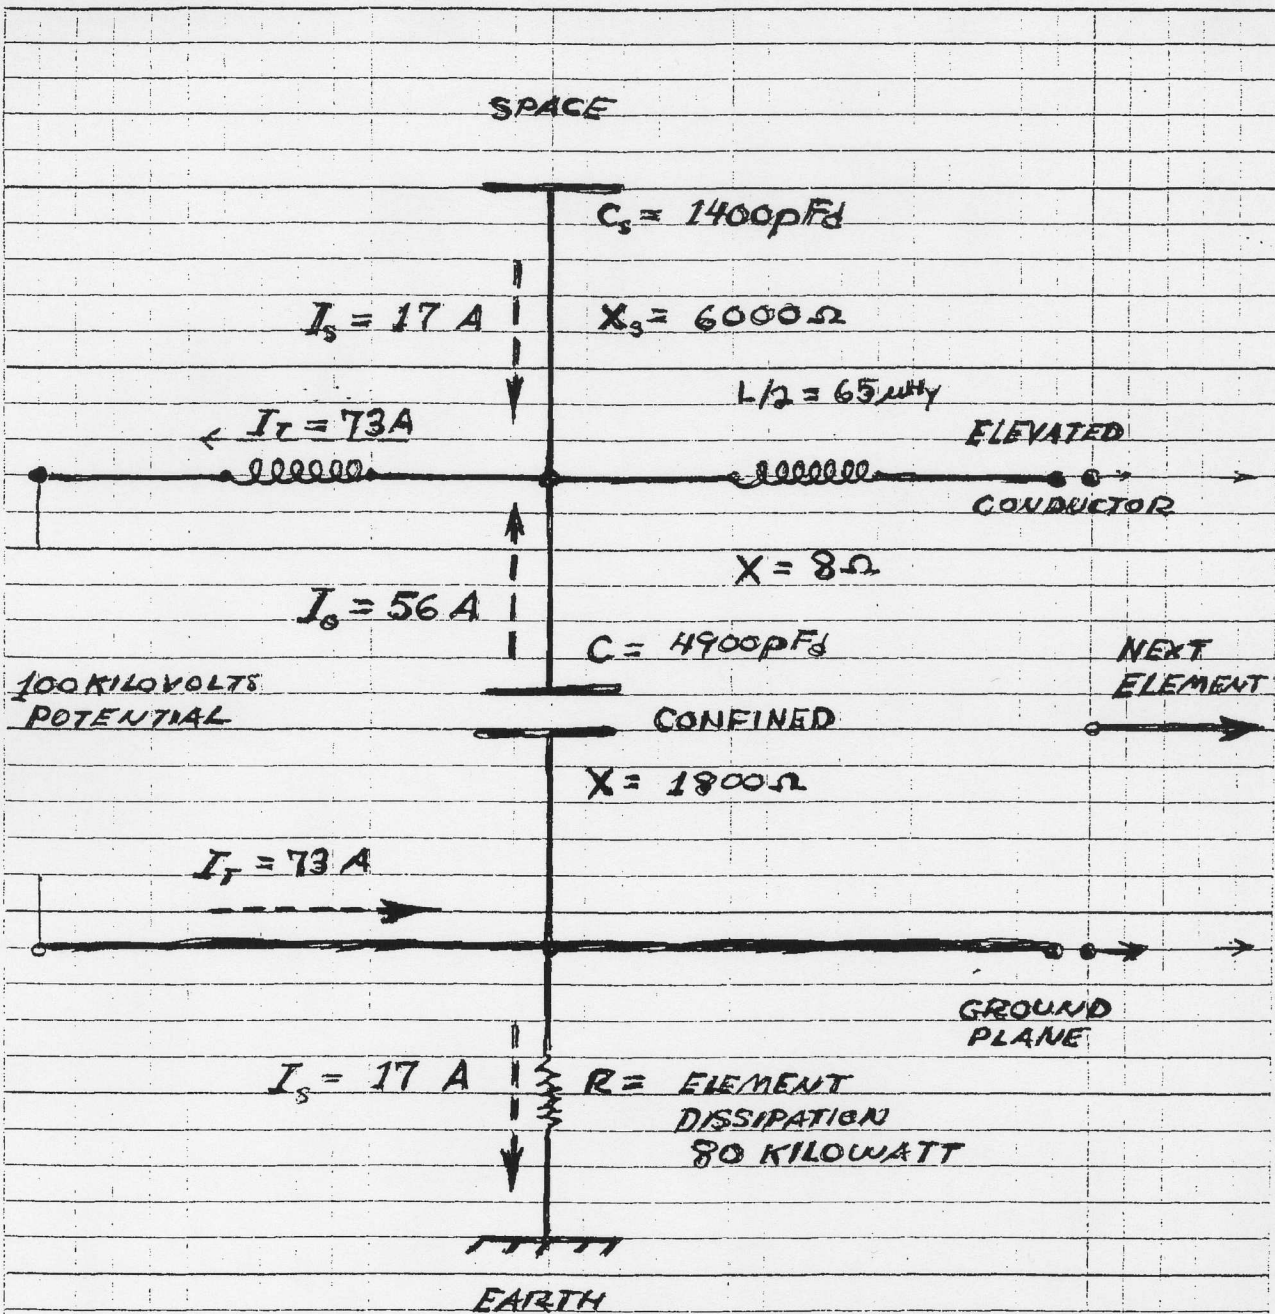 SPACE
Cs = 1400pFd
Is = 17 A
Xs = 6000Ω
L/2 = 65 μHy
IT = 73A
ELEVATED
CONDUCTOR
X = 8Ω
Iθ = 56 A
C = 4900pFd
NEXT
ELEMENT
100 KILOVOLTS
POTENTIAL
CONFINED
X = 1800Ω
IT = 73 A
GROUND
PLANE
Is = 17 A
R = ELEMENT
DISSIPATION
80 KILOWATT
EARTH